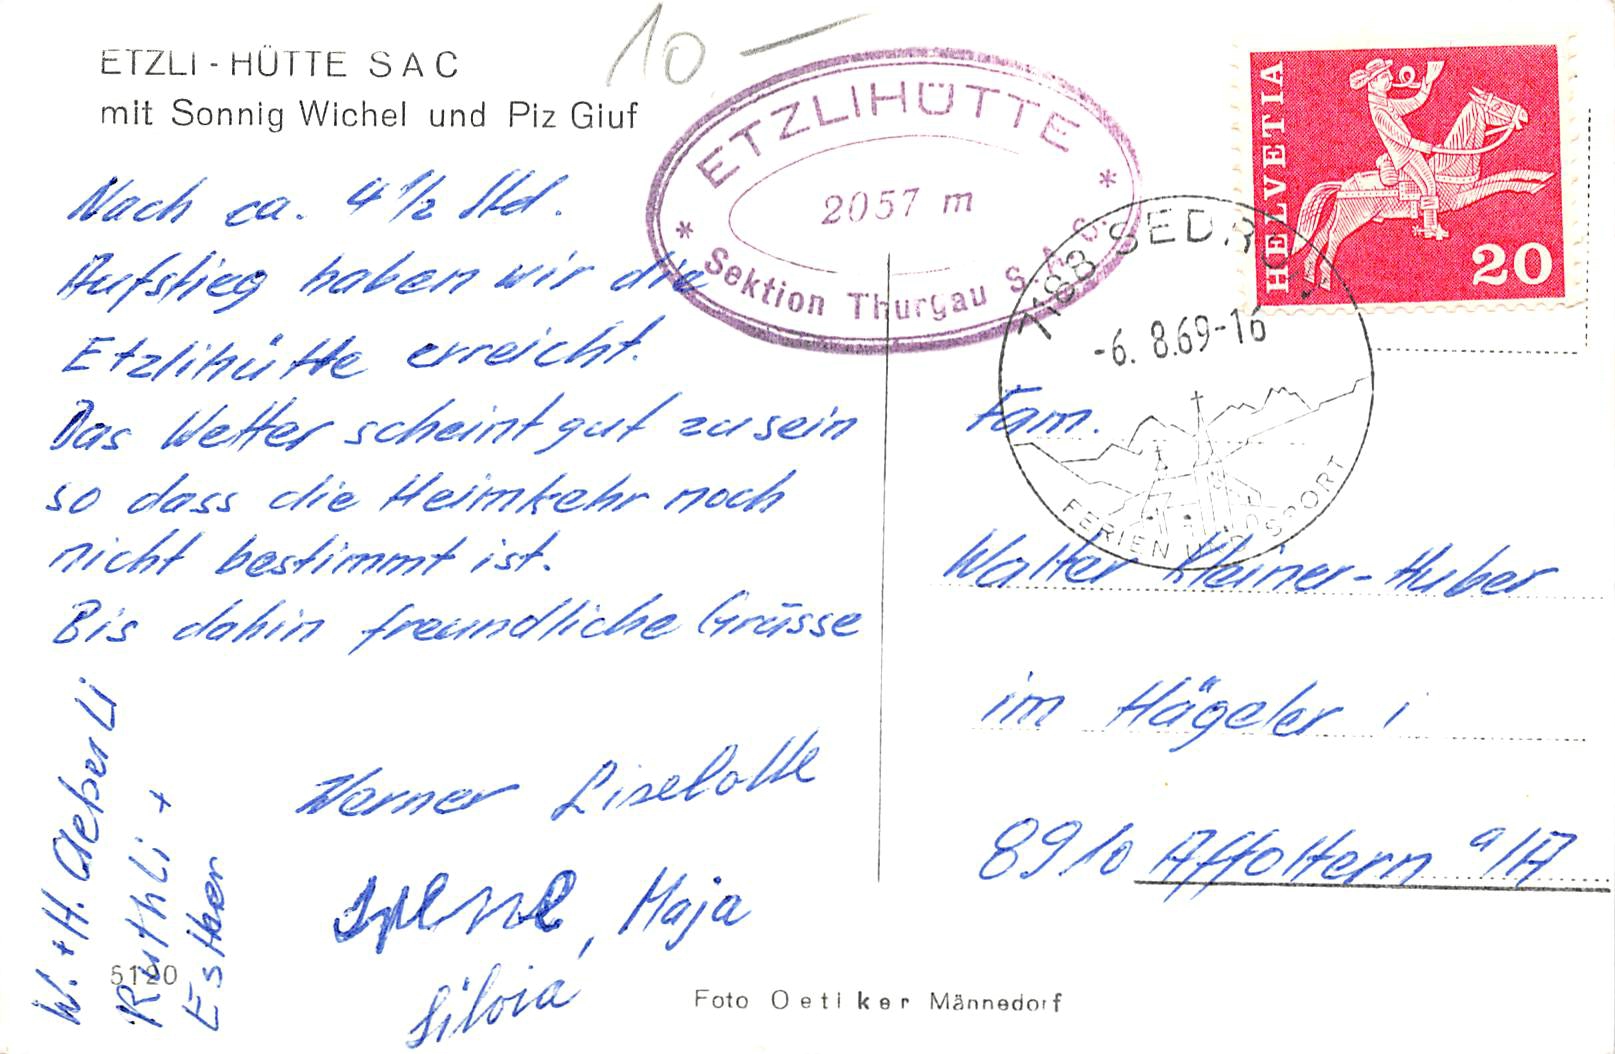 10.—
ETZLI - HÜTTE SAC
mit Sonnig Wichel und Piz Giuf
Nach ca. 4 1/2 Std.
Aufstieg haben wir die
Etzlihütte erreicht.
Das Wetter scheint gut zu sein
so dass die Heimkehr noch
nicht bestimmt ist.
Bis dahin freundliche Grüsse
Werner Liselotte
Irene, Maja
Silvia
W. + H. Aeberli
Ruthli +
Esther
5120
Foto Oetiker Männedorf
ETZLIHÜTTE
2057 m
* Sektion Thurgau S. A. C. *
HELVETIA
20
7188 SEDRUN
-6. 8.69-16
FERIEN UND SPORT
Fam.
Walter Kleiner-Huber
im Hägeler
8910 Affoltern a/A